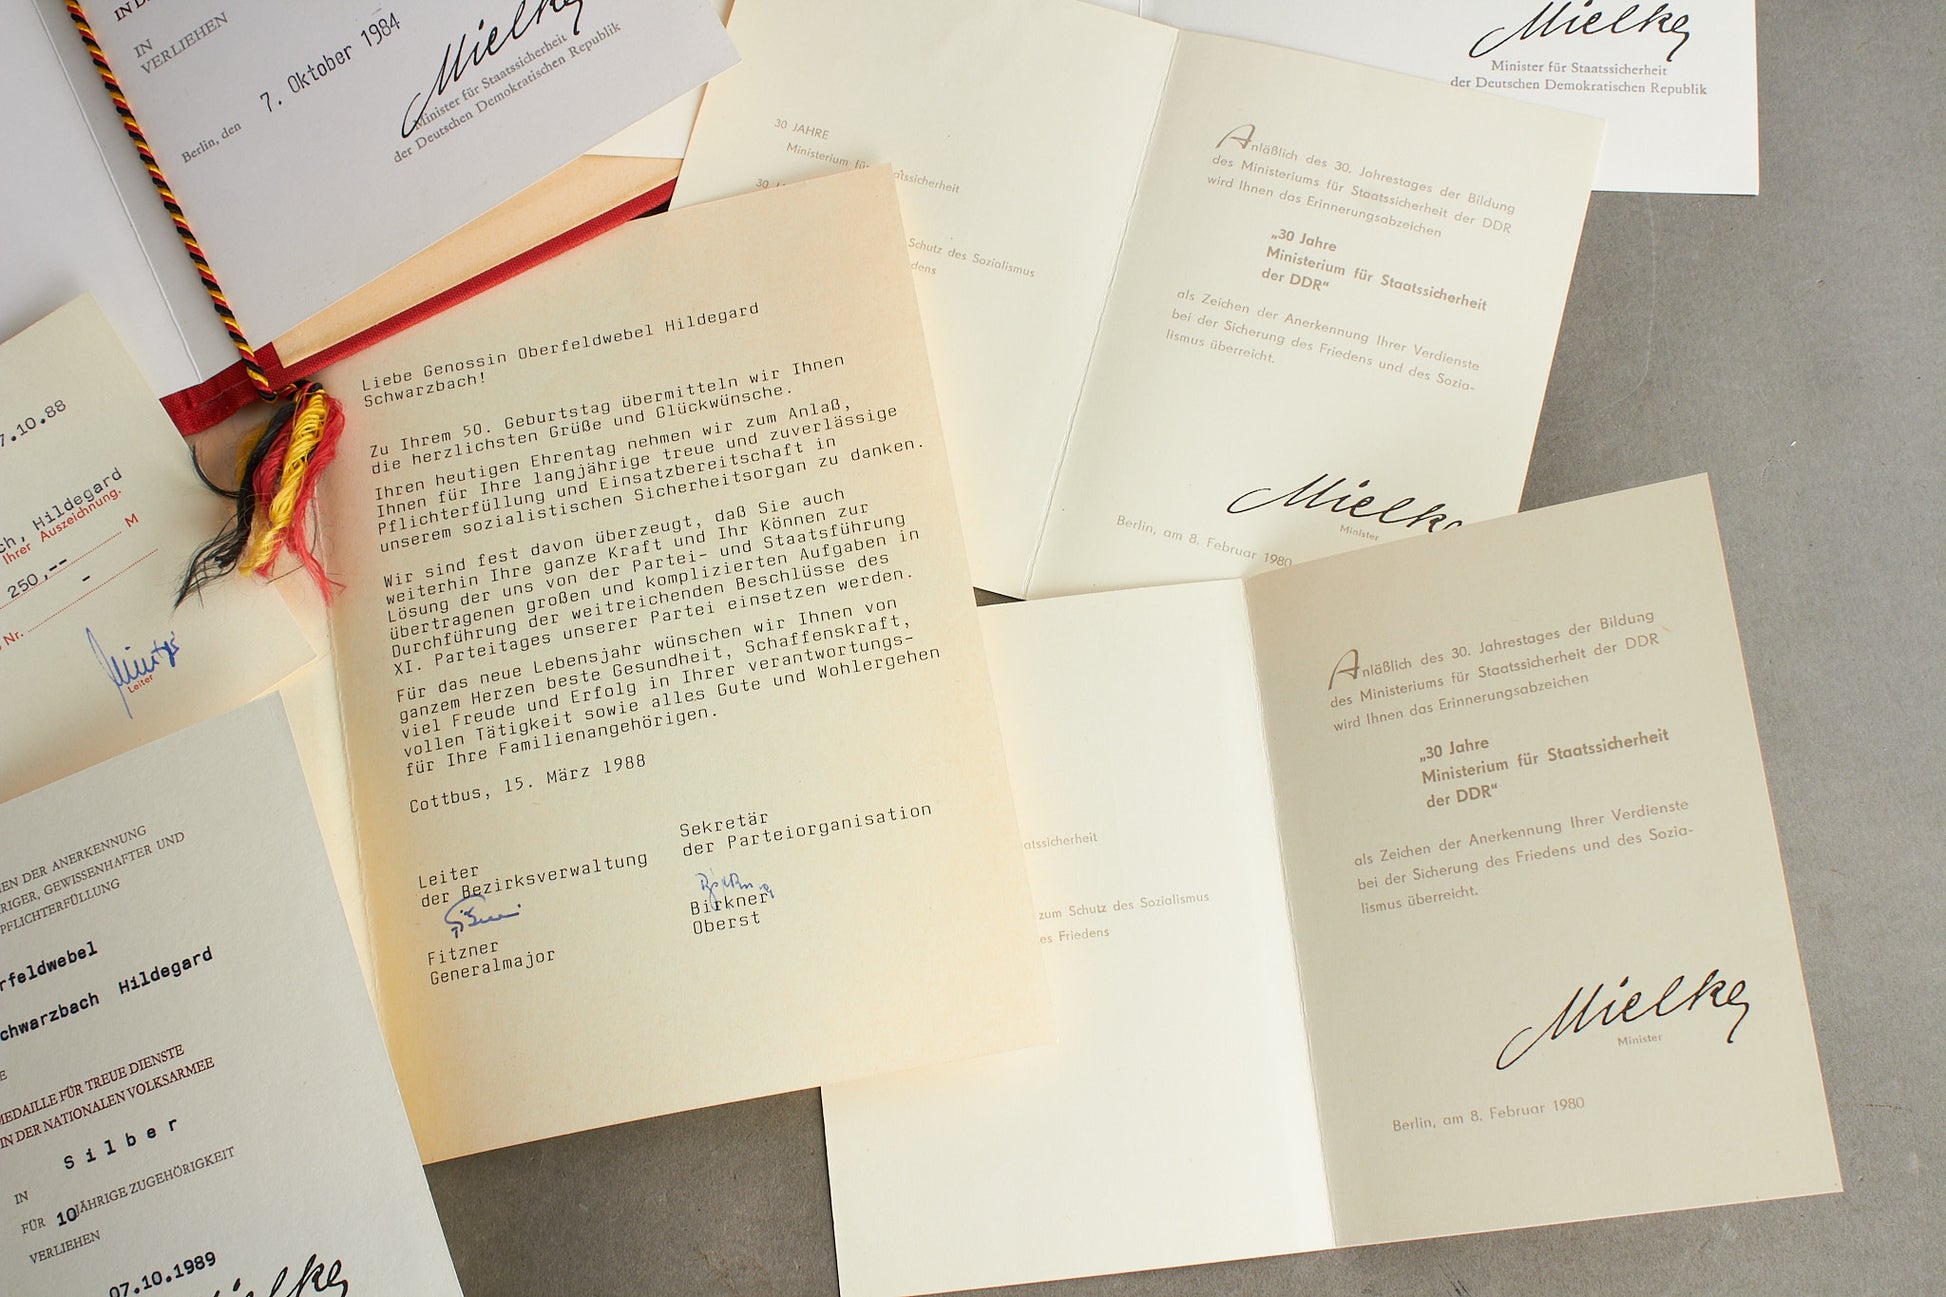 IN
VERLIEHEN
Berlin, den 7. Oktober 1984
Mielke
Minister für Staatssicherheit
der Deutschen Demokratischen Republik
Mielke
Minister für Staatssicherheit
der Deutschen Demokratischen Republik
30 JAHRE
Ministerium für
atssicherheit
30
Schutz des Sozialismus
dens
Anläßlich des 30. Jahrestages der Bildung
des Ministeriums für Staatssicherheit der DDR
wird Ihnen das Erinnerungsabzeichen
„30 Jahre
Ministerium für Staatssicherheit
der DDR“
als Zeichen der Anerkennung Ihrer Verdienste
bei der Sicherung des Friedens und des Sozia-
lismus überreicht.
Mielke
Minister
Berlin, am 8. Februar 1980
7.10.88
ch, Hildegard
Ihrer Auszeichnung.
250,-- M
-
Nr.
Leiter
Liebe Genossin Oberfeldwebel Hildegard
Schwarzbach!
Zu Ihrem 50. Geburtstag übermitteln wir Ihnen
die herzlichsten Grüße und Glückwünsche.
Ihren heutigen Ehrentag nehmen wir zum Anlaß,
Ihnen für Ihre langjährige treue und zuverlässige
Pflichterfüllung und Einsatzbereitschaft in
unserem sozialistischen Sicherheitsorgan zu danken.
Wir sind fest davon überzeugt, daß Sie auch
weiterhin Ihre ganze Kraft und Ihr Können zur
Lösung der uns von der Partei- und Staatsführung
übertragenen großen und komplizierten Aufgaben in
Durchführung der weitreichenden Beschlüsse des
XI. Parteitages unserer Partei einsetzen werden.
Für das neue Lebensjahr wünschen wir Ihnen von
ganzem Herzen beste Gesundheit, Schaffenskraft,
viel Freude und Erfolg in Ihrer verantwortungs-
vollen Tätigkeit sowie alles Gute und Wohlergehen
für Ihre Familienangehörigen.
Cottbus, 15. März 1988
Leiter
der Bezirksverwaltung
Fitzner
Generalmajor
Sekretär
der Parteiorganisation
Birkner
Oberst
EN DER ANERKENNUNG
RIGER, GEWISSENHAFTER UND
PFLICHTERFÜLLUNG
rfeldwebel
chwarzbach Hildegard
E
MEDAILLE FÜR TREUE DIENSTE
IN DER NATIONALEN VOLKSARMEE
IN Silber
FÜR 10JÄHRIGE ZUGEHÖRIGKEIT
VERLIEHEN
07.10.1989
Mielke
atssicherheit
zum Schutz des Sozialismus
es Friedens
Anläßlich des 30. Jahrestages der Bildung
des Ministeriums für Staatssicherheit der DDR
wird Ihnen das Erinnerungsabzeichen
„30 Jahre
Ministerium für Staatssicherheit
der DDR“
als Zeichen der Anerkennung Ihrer Verdienste
bei der Sicherung des Friedens und des Sozia-
lismus überreicht.
Mielke
Minister
Berlin, am 8. Februar 1980